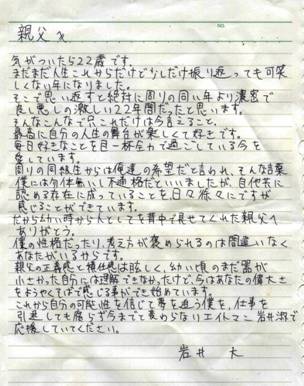 NO.
親父へ
気がついたら22歳です。
まだまだ人生これからだけど少しだけ振り返っても可笑
しくない年になりました。
そこで思い返すと絶対に周りの同い年より濃密で
良し悪しの激しい22年間だったと思います。
そんなこんなで只これだけは今言えること。
最高に自分の人生の舞台が楽しくて好きです。
毎日好きなことを目一杯全力で過ごしている今を
愛しています。
周りの同級生からは俺達の希望だと言われ、そんな言葉
僕には勿体無いし不適格だといいましたが、自他共に
認める存在に成っていることを日々徐々にですが
感じることができています。
だから幼い時から人としても背中を見せてくれた親父へ
ありがとう。
僕の性格だったり、考え方が褒められるのは間違いなく
あなたがいるからです。
親父の正義感と責任感は眩しく、幼い頃のまだ器が
小さかった自分には理解できなかったけど、今はあなたの偉大さ
をようやくすぐ傍で感じる事ができ始めています。
これから自分の可能性を信じて夢を追う僕を、仕事を
引退しても腐らず今までと変わらないエイトマン岩井
応援していてください。
岩井 大